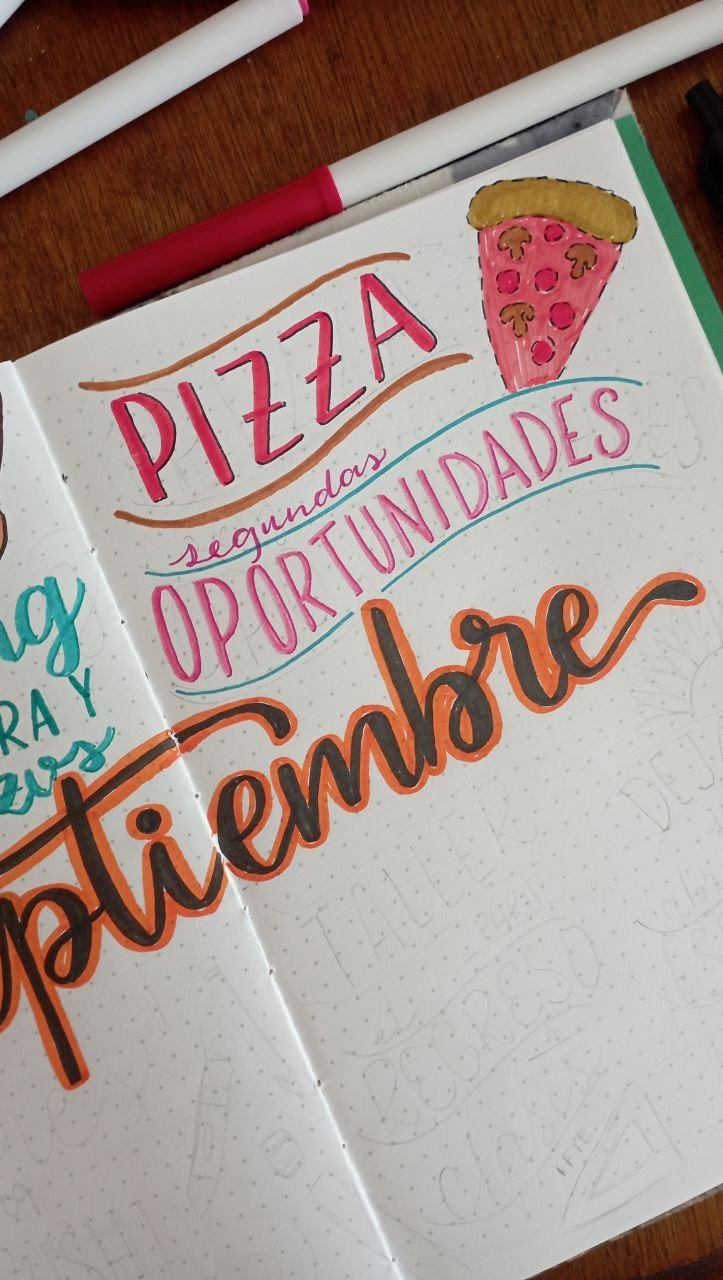 PIZZA
segundas
OPORTUNIDADES
ng
RA Y
zos
ptiembre
TALLER
PARA
el
REGRESO
A
clases
DEJA
USHI